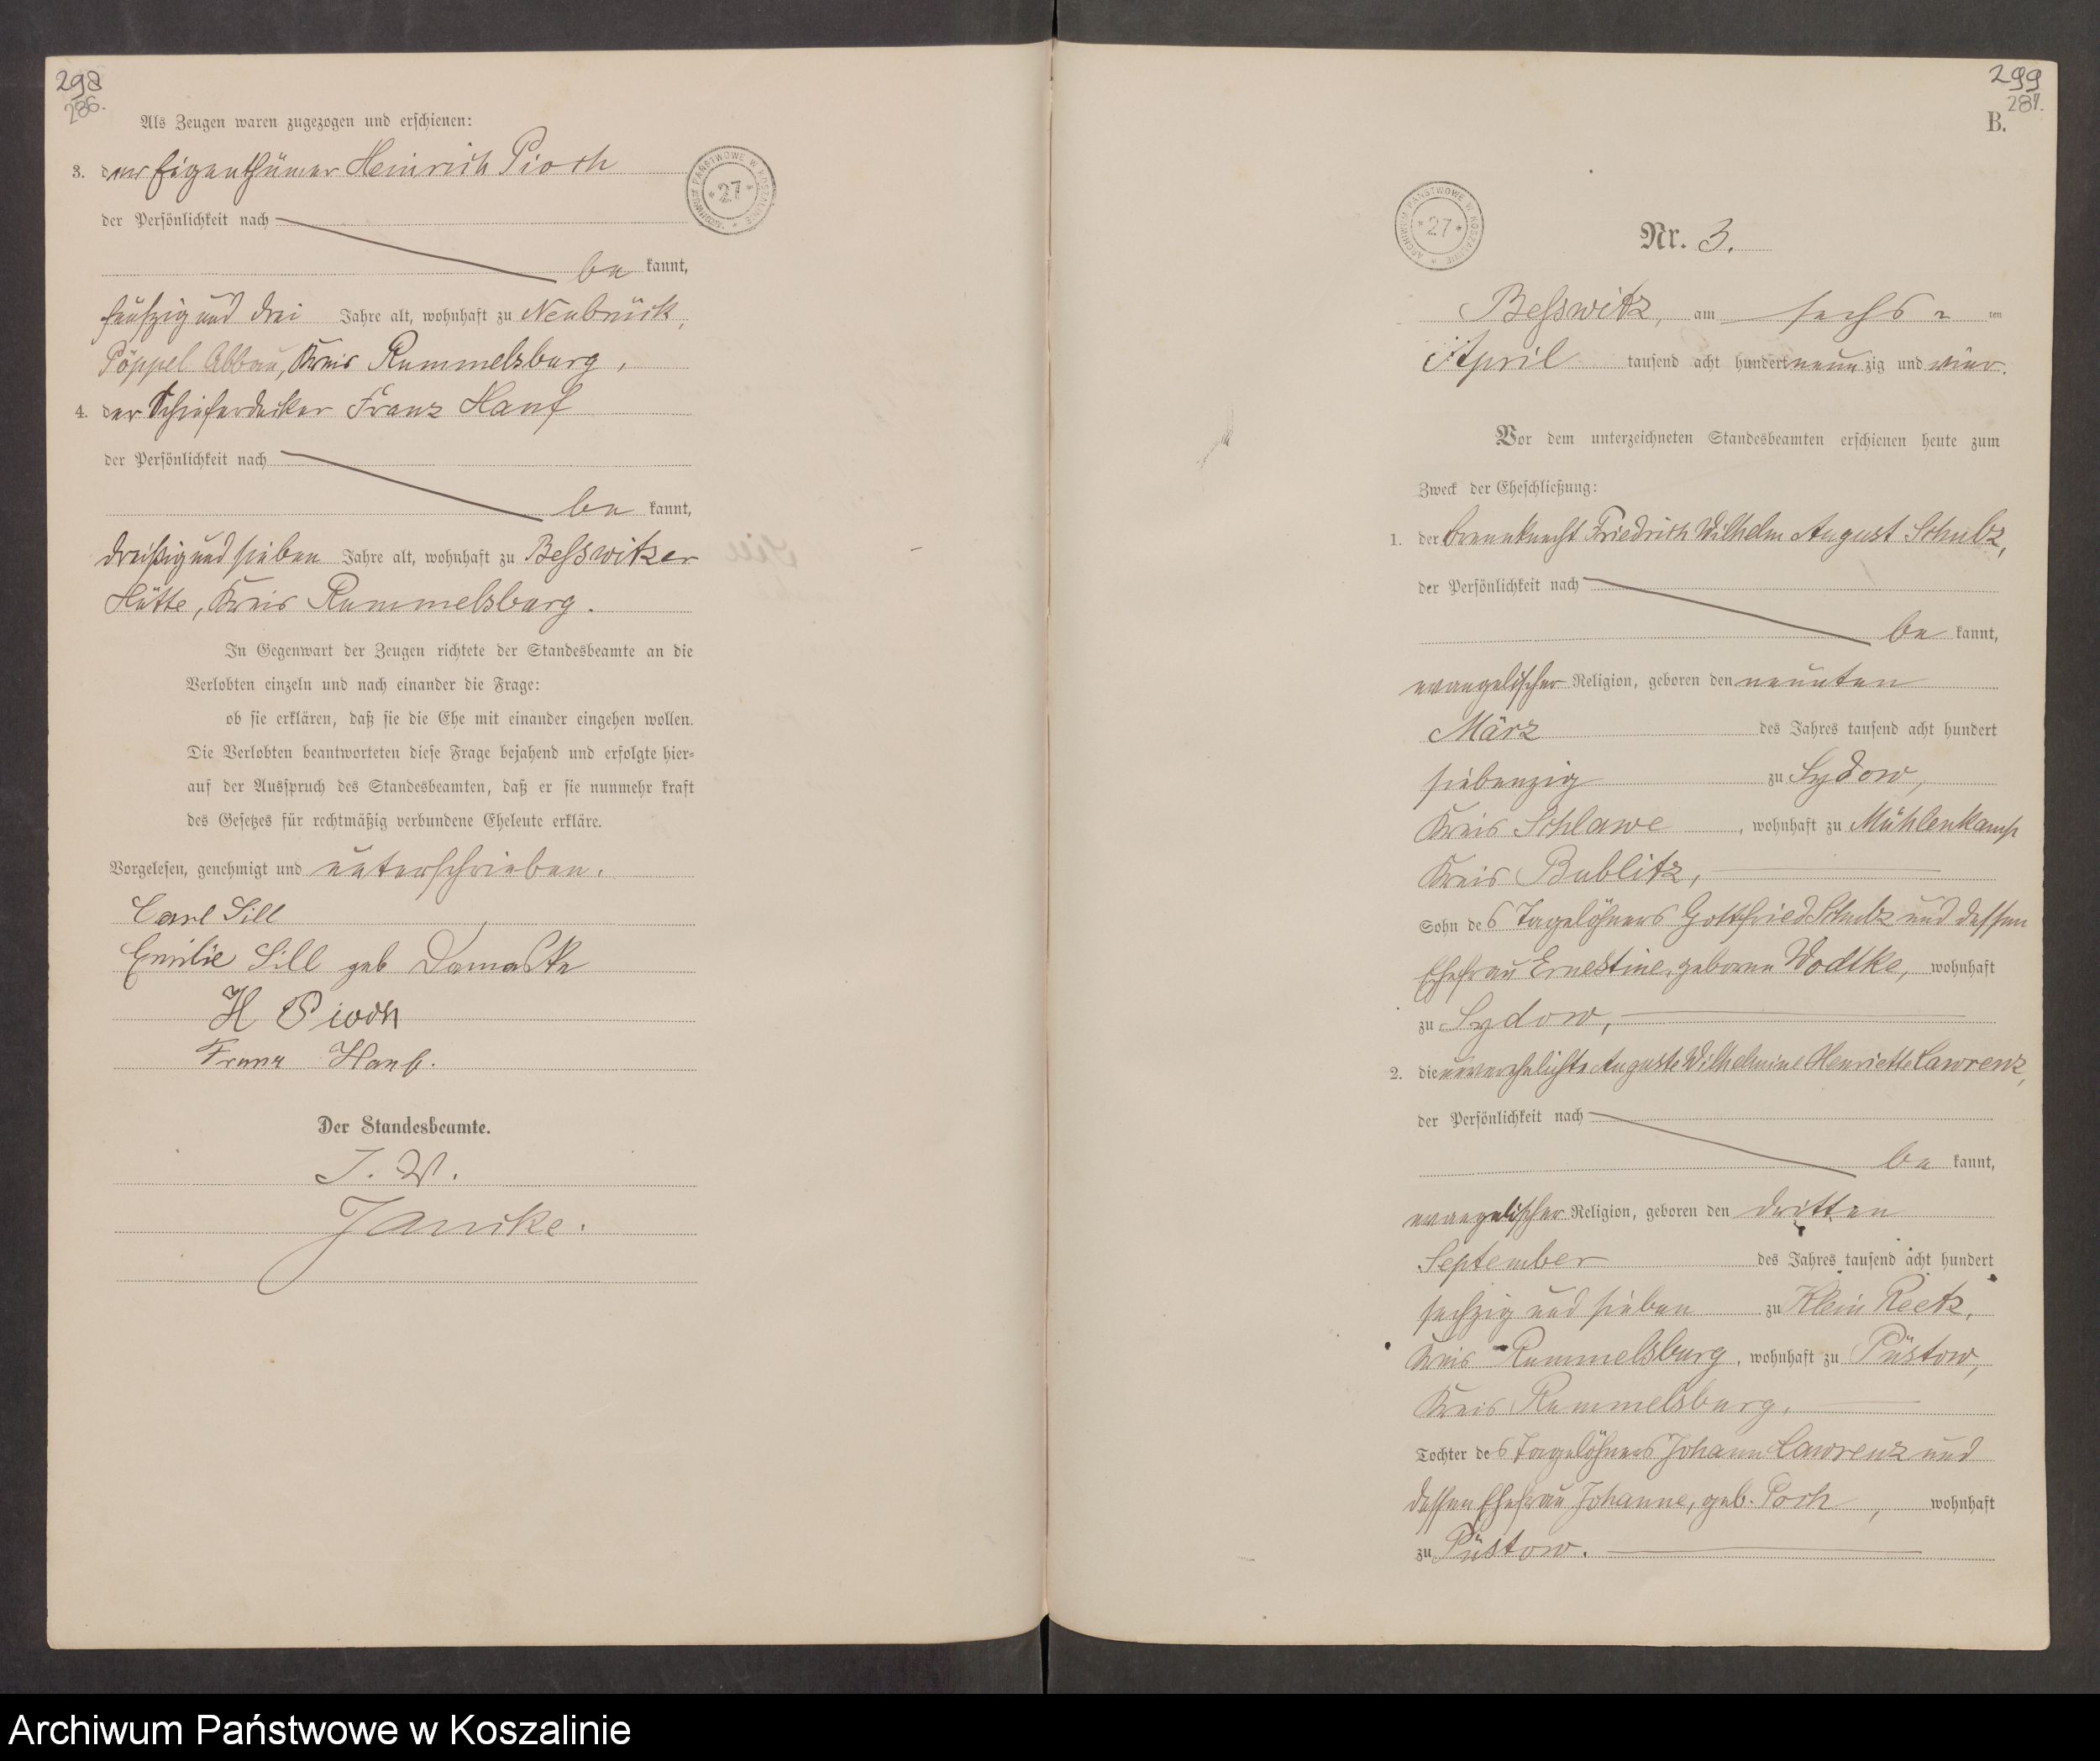 298
286.
Als Zeugen waren zugezogen und erschienen:
3. der Eigenthümer Heinrich Pioch
der Persönlichkeit nach
be kannt,
fünfzig und drei Jahre alt, wohnhaft zu Neubrück,
Pöppel Abbau, Kreis Rummelsburg,
4. der Schieferdecker Franz Hanf
der Persönlichkeit nach
be kannt,
dreißig und sieben Jahre alt, wohnhaft zu Besswitzer
Hütte, Kreis Rummelsburg.
In Gegenwart der Zeugen richtete der Standesbeamte an die
Verlobten einzeln und nach einander die Frage:
ob sie erklären, daß sie die Ehe mit einander eingehen wollen.
Die Verlobten beantworteten diese Frage bejahend und erfolgte hier-
auf der Ausspruch des Standesbeamten, daß er sie nunmehr kraft
des Gesetzes für rechtmäßig verbundene Eheleute erkläre.
Vorgelesen, genehmigt und unterschrieben.
Carl Sill
Emilie Sill geb Damaske
H Pioch
Franz Hanf.
Der Standesbeamte.
J. V.
Jancke.
ARCHIWUM PAŃSTWOWE W KOSZALINIE * 27 *
299
287.
B.
ARCHIWUM PAŃSTWOWE W KOSZALINIE * 27 *
Nr. 3.
Besswitz, am sechs ten
April tausend acht hundert neun zig und vier.
Vor dem unterzeichneten Standesbeamten erschienen heute zum
Zweck der Eheschließung:
1. der Brennknecht Friedrich Wilhelm August Schulz,
der Persönlichkeit nach
be kannt,
evangelischer Religion, geboren den neunten
März des Jahres tausend acht hundert
siebenzig zu Sydow,
Kreis Schlawe, wohnhaft zu Mühlenkamp
Kreis Bublitz,
Sohn des Tagelöhners Gottfried Schulz und dessen
Ehefrau Ernestine, geborene Wodtke, wohnhaft
zu Sydow,
2. die unverehelichte Auguste Wilhelmine Henriette Lawrenz,
der Persönlichkeit nach
be kannt,
evangelischer Religion, geboren den dritten
September des Jahres tausend acht hundert
sechzig und sieben zu Klein Reetz,
Kreis Rummelsburg, wohnhaft zu Püstow,
Kreis Rummelsburg,
Tochter des Tagelöhners Johann Lawrenz und
dessen Ehefrau Johanne, geb. Poch, wohnhaft
zu Püstow.
Archiwum Państwowe w Koszalinie